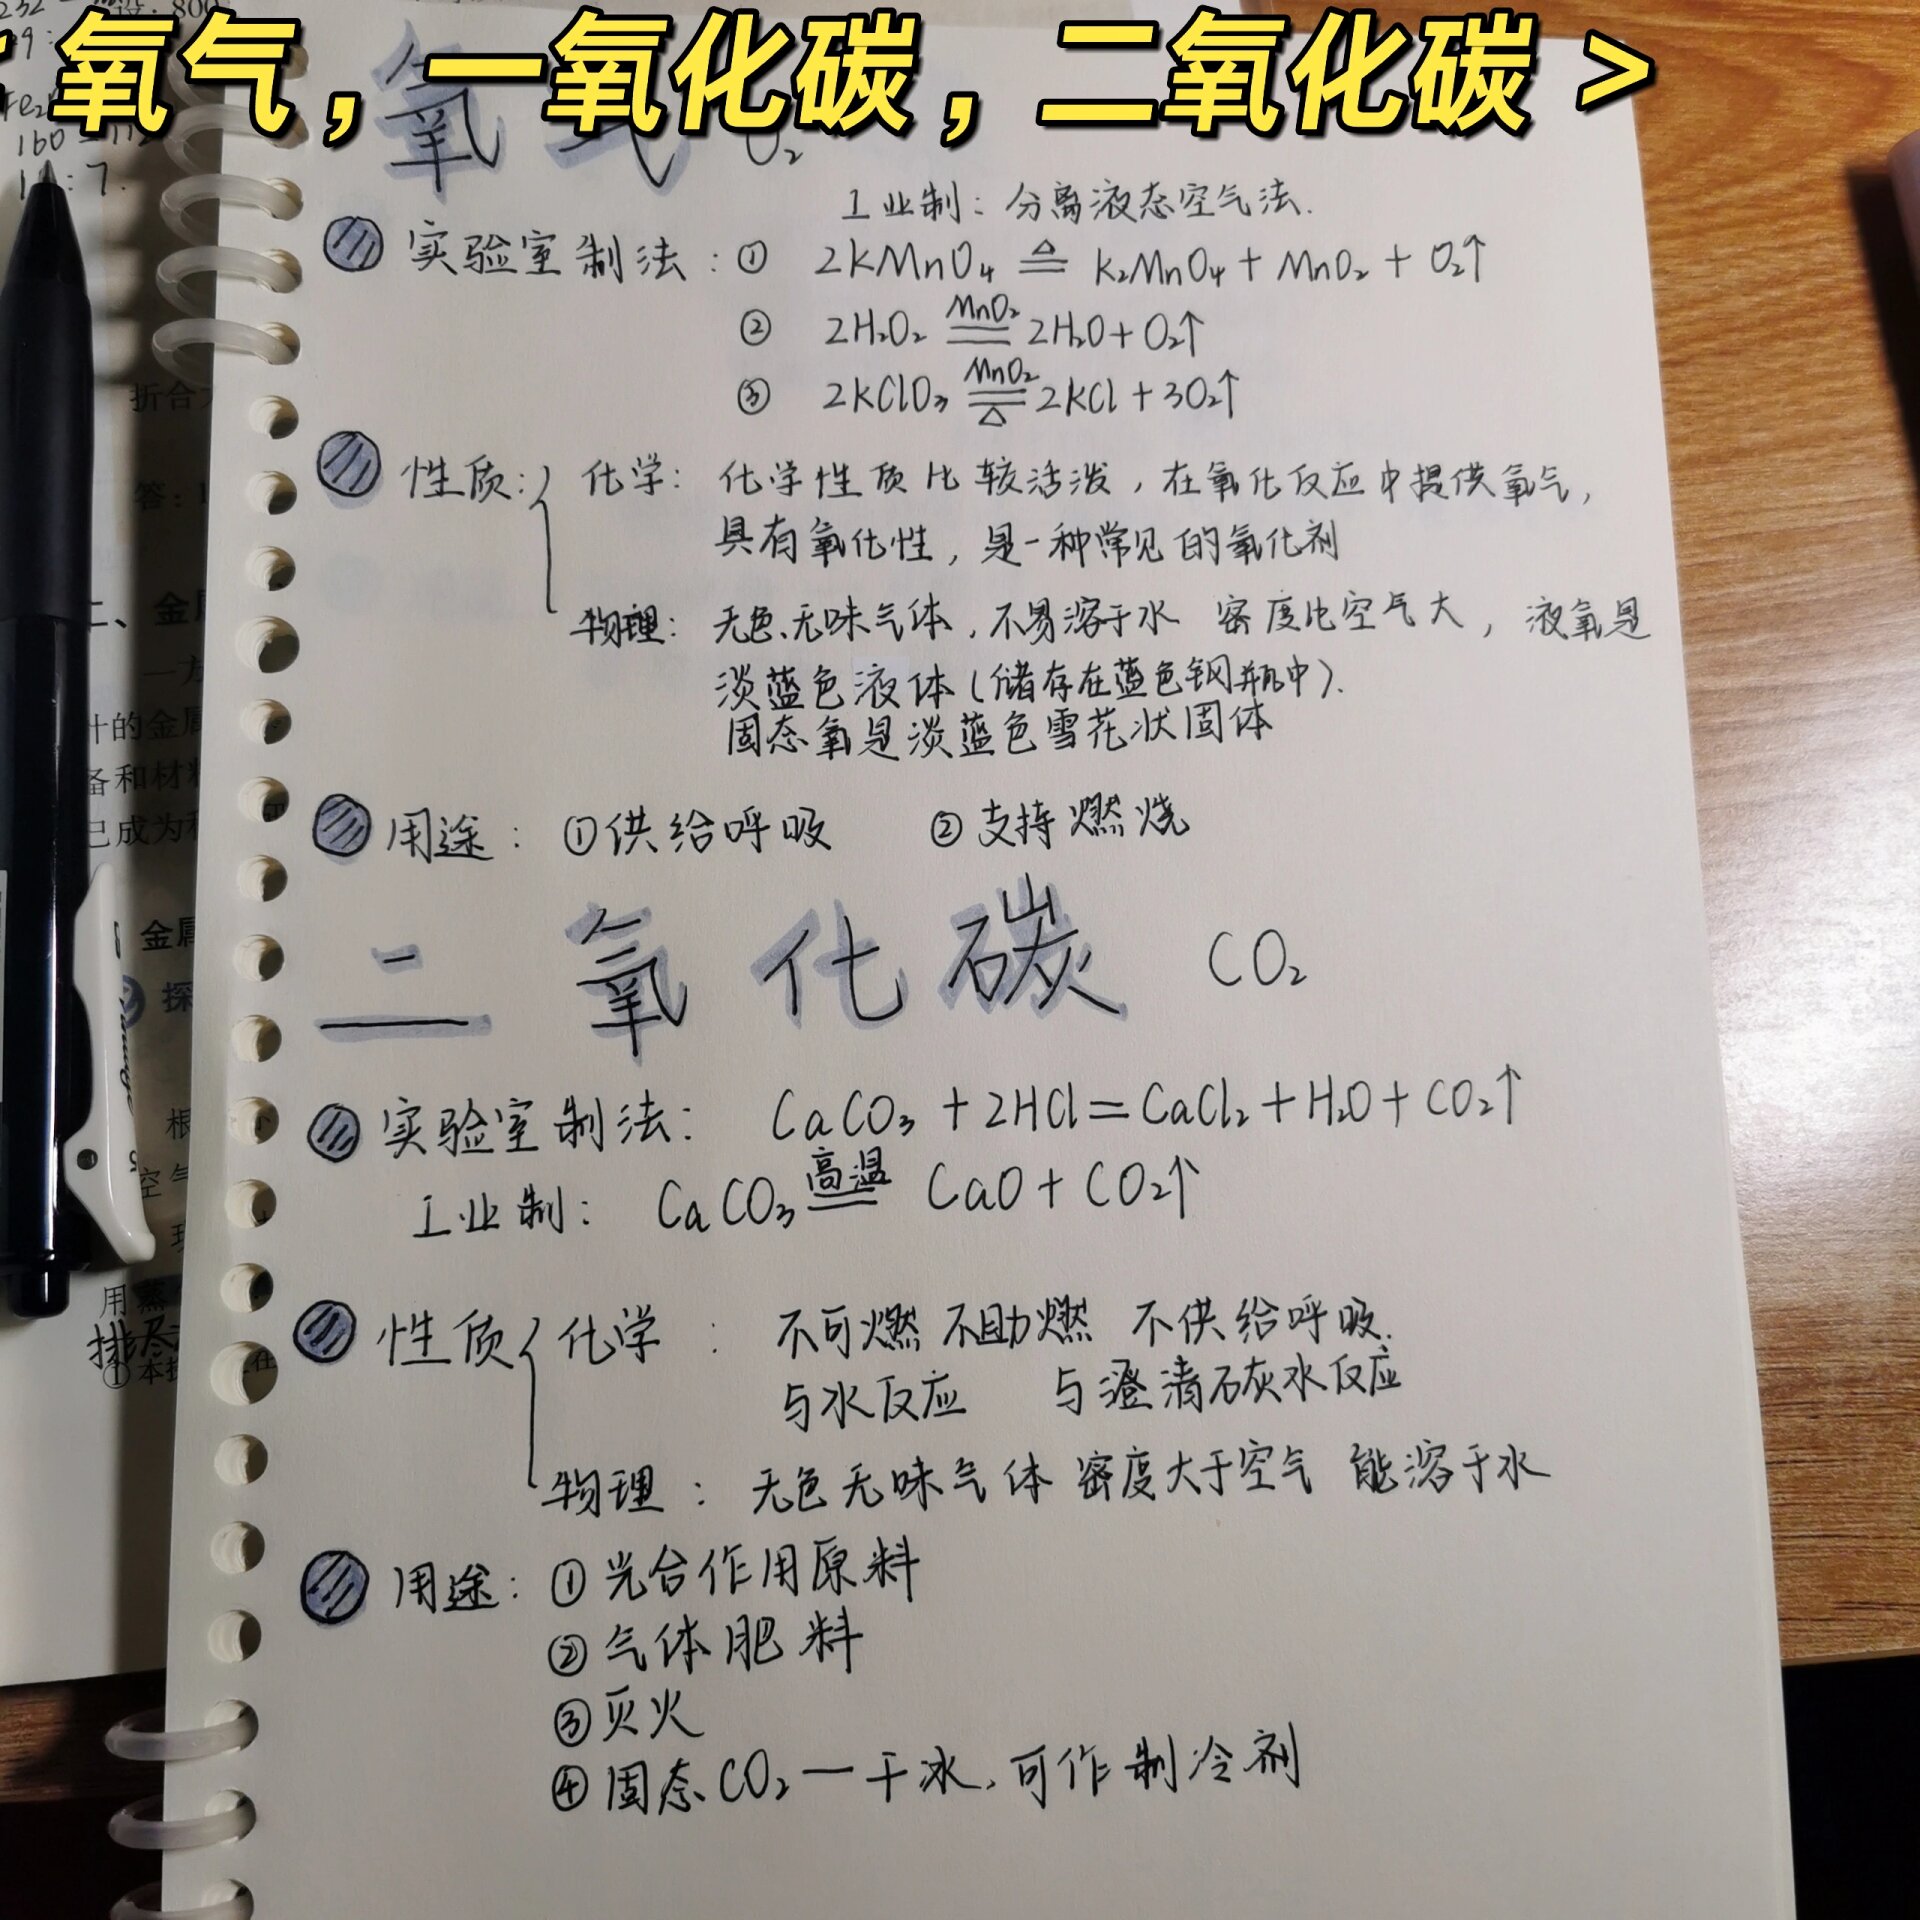 氧气，一氧化碳，二氧化碳 >
氧气 O₂
工业制：分离液态空气法.
实验室制法：① 2KMnO₄ ≜ K₂MnO₄ + MnO₂ + O₂↑
MnO₂
② 2H₂O₂ == 2H₂O + O₂↑
MnO₂
③ 2KClO₃ == 2KCl + 3O₂↑
△
性质：化学：化学性质比较活泼，在氧化反应中提供氧气，
具有氧化性，是一种常见的氧化剂
物理：无色、无味气体，不易溶于水 密度比空气大，液氧是
淡蓝色液体（储存在蓝色钢瓶中）.
固态氧是淡蓝色雪花状固体
用途：①供给呼吸 ②支持燃烧
二氧化碳 CO₂
实验室制法：CaCO₃ + 2HCl = CaCl₂ + H₂O + CO₂↑
高温
工业制：CaCO₃ == CaO + CO₂↑
性质 化学：不可燃 不助燃 不供给呼吸.
与水反应 与澄清石灰水反应
物理：无色无味气体 密度大于空气 能溶于水
用途：①光合作用原料
②气体肥料
③灭火
④固态CO₂—干冰，可作制冷剂
设：800
160
折合
答：
二、金
一方
计的金属
备和材料
已成为
金属
探
根
空气
用
排尽
①本